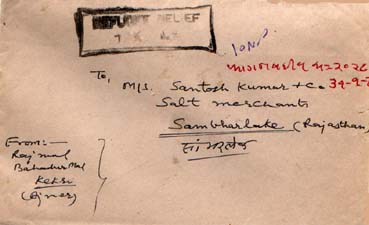 REFUGEE RELIEF
To,
M/s. Santosh Kumar + Co
Salt merchants
Sambharlake (Rajasthan)
सांभरलेक
From:—
Rajmal
Bahadur Mal
Kekri
(Ajmer)